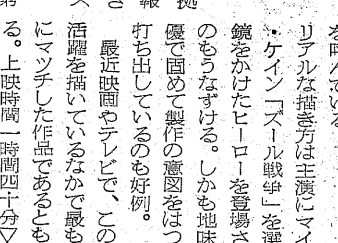 を呼んでいる
リアルな描き方は主演にマイ
・ケイン「ズール戦争」を選
鏡をかけたヒーローを登場さ
のもうなずける。しかも地味
優で固めて製作の意図をはつ
打ち出しているのも好例。
最近映画やテレビで、この
活躍を描いているなかで最も
にマツチした作品であるとも
る。上映時間一時間四十分▽